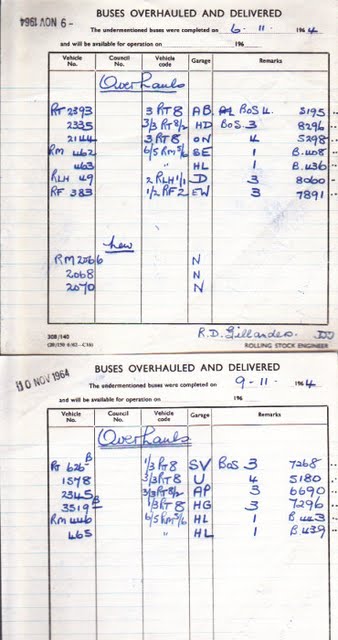 6 - NOV 1964
BUSES OVERHAULED AND DELIVERED
The undermentioned buses were completed on 6 - 11. 1964
and will be available for operation on 196
Vehicle No. Council No. Vehicle code Garage Remarks
Overhauls
RT 2393 3 RT8 AB BOS 4. 5195
2335 3/3 RT8/2 HD BOS 3 8296
2144 3 RT8 ON 4 5298
RM 462 6/5 RM5/6 SE 1 B.408
463 " HL 1 B.436
RLH 49 2 RLH1/1 D 3 8060
RF 383 1/2 RF2 EW 3 7891
New
RM 2066 N
2068 N
2070 N
308/140
R.D. Gillanders.
ROLLING STOCK ENGINEER
10 NOV 1964
BUSES OVERHAULED AND DELIVERED
The undermentioned buses were completed on 9 - 11. 1964
and will be available for operation on 196
Vehicle No. Council No. Vehicle code Garage Remarks
Overhauls
RT 626 B 1/3 RT8 SV BOS 3 7268
1578 3/3 RT8 U 4 5180
2345 3/3 RT8/2 AP 3 6690
3519 B 1/3 RT8 HG 3 7296
RM 446 6/5 RM5/6 HL 1 B.443
465 " HL 1 B.439